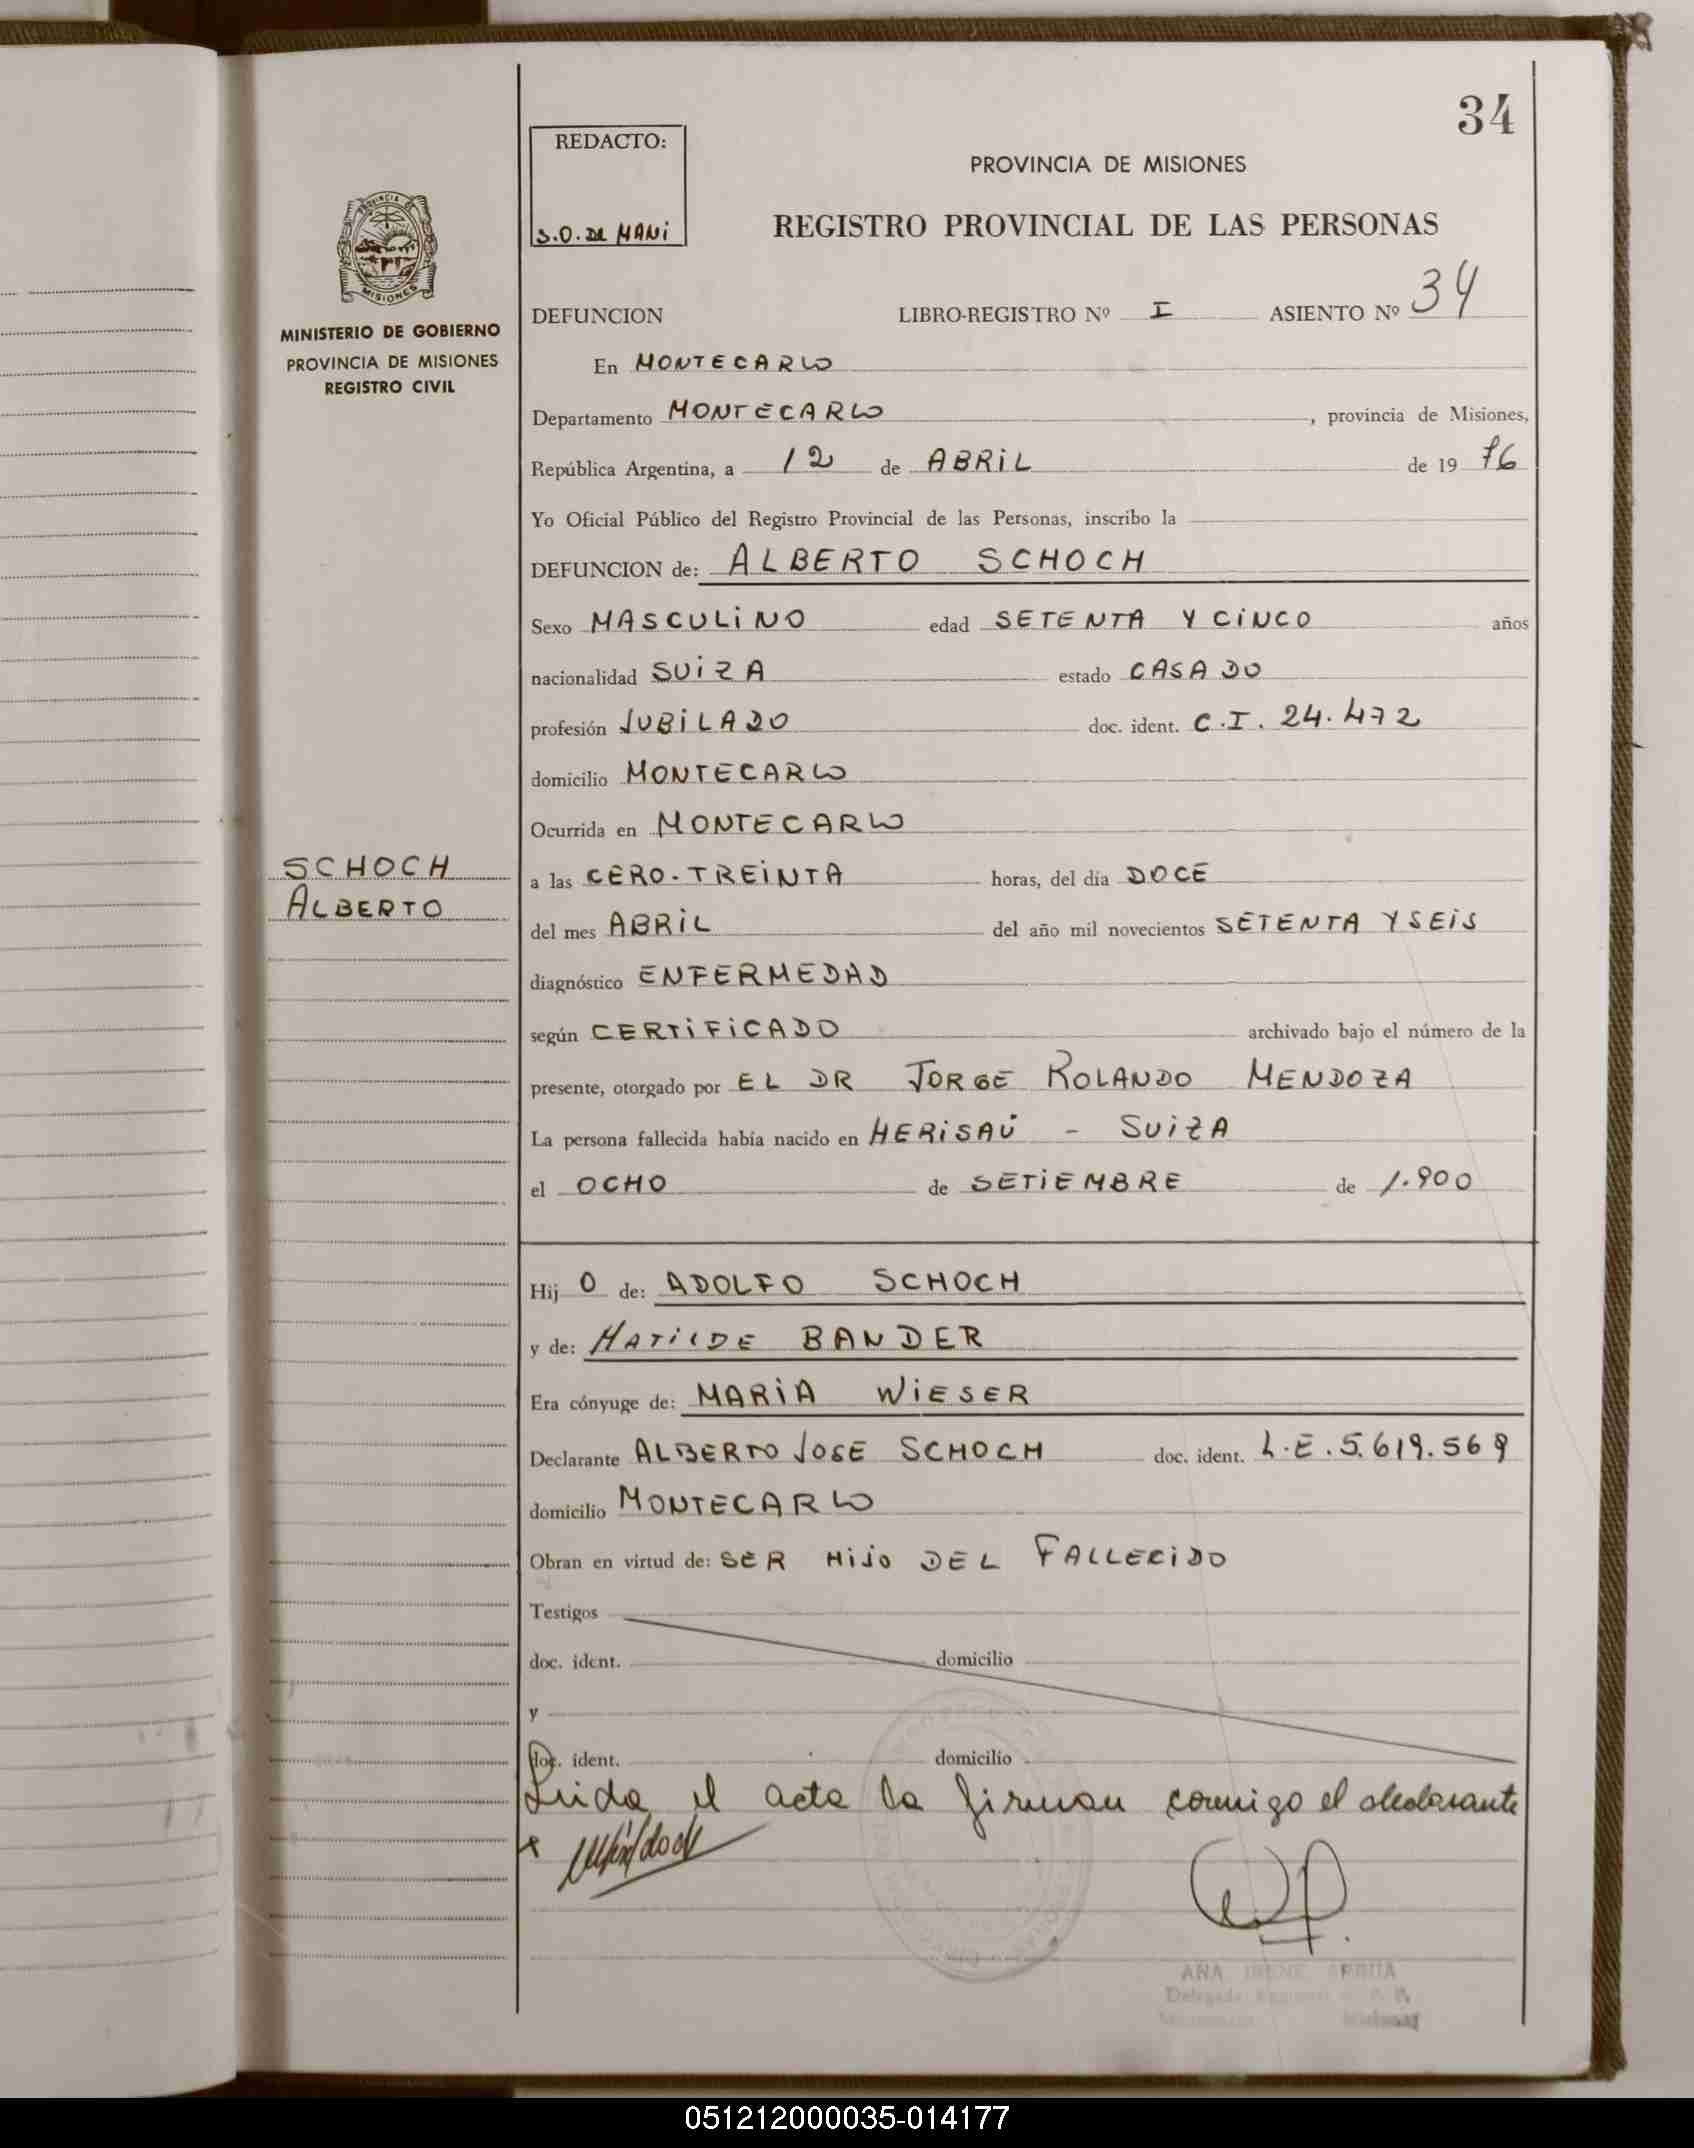 34
REDACTO:
S.O. DE MANI
PROVINCIA DE MISIONES
REGISTRO PROVINCIAL DE LAS PERSONAS
PROVINCIA DE
MISIONES
MINISTERIO DE GOBIERNO
PROVINCIA DE MISIONES
REGISTRO CIVIL
DEFUNCION LIBRO-REGISTRO Nº I ASIENTO Nº 34
En MONTECARLO
Departamento MONTECARLO, provincia de Misiones,
República Argentina, a 12 de ABRIL de 19 76
Yo Oficial Público del Registro Provincial de las Personas, inscribo la
DEFUNCION de: ALBERTO SCHOCH
Sexo MASCULINO edad SETENTA Y CINCO años
nacionalidad SUIZA estado CASADO
profesión JUBILADO doc. ident. C.I. 24.472
domicilio MONTECARLO
Ocurrida en MONTECARLO
SCHOCH
ALBERTO
a las CERO-TREINTA horas, del día DOCE
del mes ABRIL del año mil novecientos SETENTA Y SEIS
diagnóstico ENFERMEDAD
según CERTIFICADO archivado bajo el número de la
presente, otorgado por EL DR JORGE ROLANDO MENDOZA
La persona fallecida había nacido en HERISAU - SUIZA
el OCHO de SETIEMBRE de 1.900
Hij O de: ADOLFO SCHOCH
y de: MATILDE BANDER
Era cónyuge de: MARIA WIESER
Declarante ALBERTO JOSE SCHOCH doc. ident. L.E. 5.619.569
domicilio MONTECARLO
Obran en virtud de: SER HIJO DEL FALLECIDO
Testigos
doc. ident. domicilio
y
doc. ident. domicilio
Leida el acta la firman conmigo el declarante
ANA IRENE
Delegada
051212000035-014177